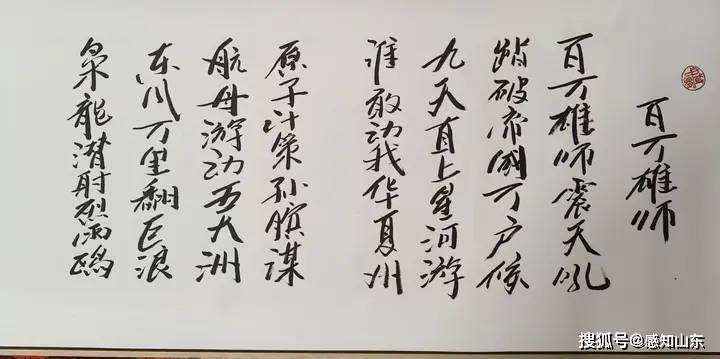 百万雄师
百万雄师震天吼
踏破帝國万户候
九天直上星河游
谁敢动我华夏州
原子计策孙膑谋
航母游动五大洲
东风万里翻巨浪
枭龙潜射烈雨鸥
搜狐号@感知山东